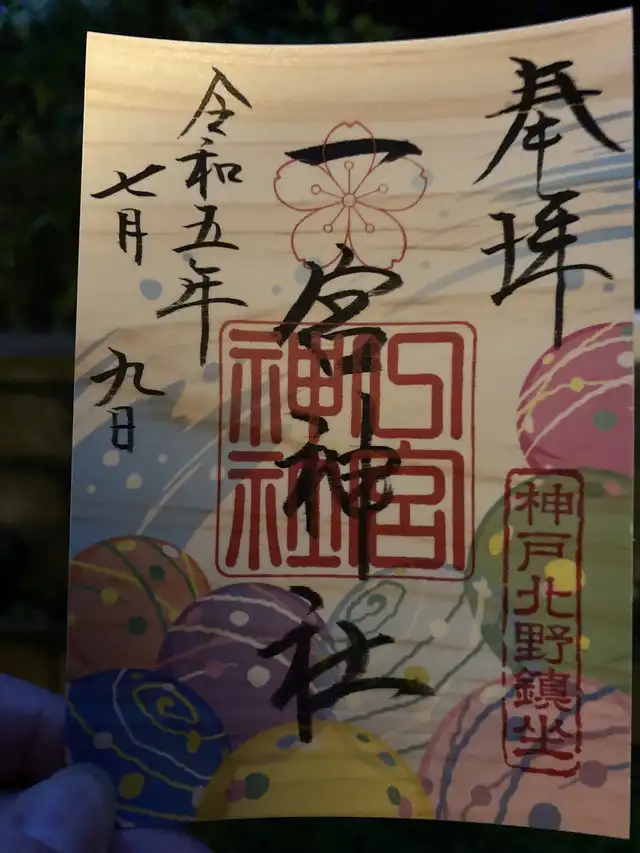 奉拝
神戸北野鎮坐
一宮神社
一宮
神社
令和五年
七月九日